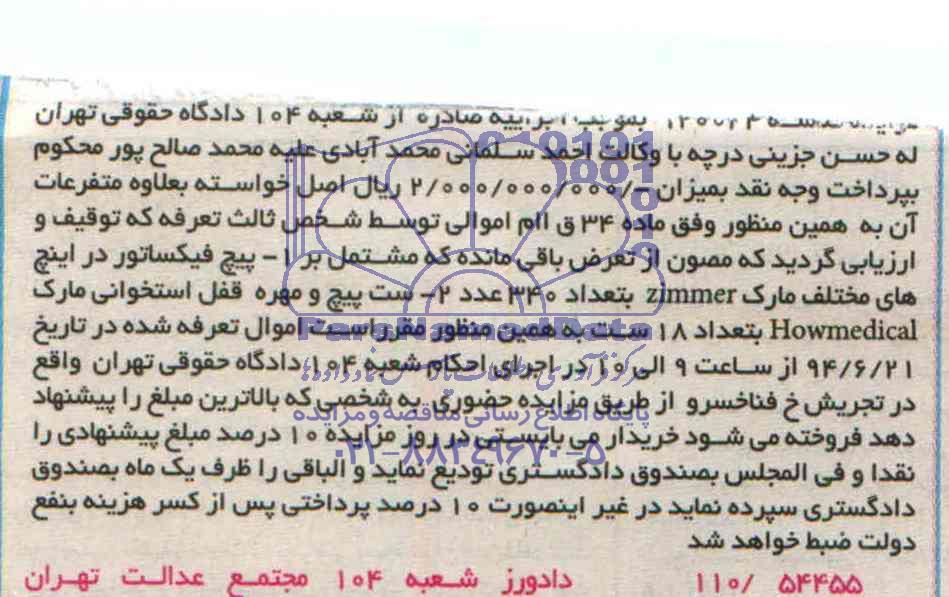 بموجب اجراییه صادره از شعبه ۱۰۴ دادگاه حقوقی تهران
له حسن جزینی درچه با وکالت احمد سلمانی محمد آبادی علیه محمد صالح پور محکوم
بپرداخت وجه نقد بمیزان -/۲/۰۰۰/۰۰۰/۰۰۰ ریال اصل خواسته بعلاوه متفرعات
آن به همین منظور وفق ماده ۳۴ ق اام اموالی توسط شخص ثالث تعرفه که توقیف و
ارزیابی گردید که مصون از تعرض باقی مانده که مشتمل بر ۱- پیچ فیکساتور در اینچ
های مختلف مارک zimmer بتعداد ۳۴۰ عدد ۲- ست پیچ و مهره قفل استخوانی مارک
Howmedical بتعداد ۱۸ ست به همین منظور مقرر است اموال تعرفه شده در تاریخ
۹۴/۶/۲۱ از ساعت ۹ الی ۱۰ در اجرای احکام شعبه ۱۰۴ دادگاه حقوقی تهران واقع
در تجریش خ فناخسرو از طریق مزایده حضوری به شخصی که بالاترین مبلغ را پیشنهاد
دهد فروخته می شود خریدار می بایستی در روز مزایده ۱۰ درصد مبلغ پیشنهادی را
نقدا و فی المجلس بصندوق دادگستری تودیع نماید و الباقی را ظرف یک ماه بصندوق
دادگستری سپرده نماید در غیر اینصورت ۱۰ درصد پرداختی پس از کسر هزینه بنفع
دولت ضبط خواهد شد
۱۱۰/ ۵۴۴۵۵ دادورز شعبه ۱۰۴ مجتمع عدالت تهران
Pars Namad Data
پایگاه اطلاع رسانی مناقصه و مزایده
۰۲۱-۸۸۳۴۹۶۷۰-۵